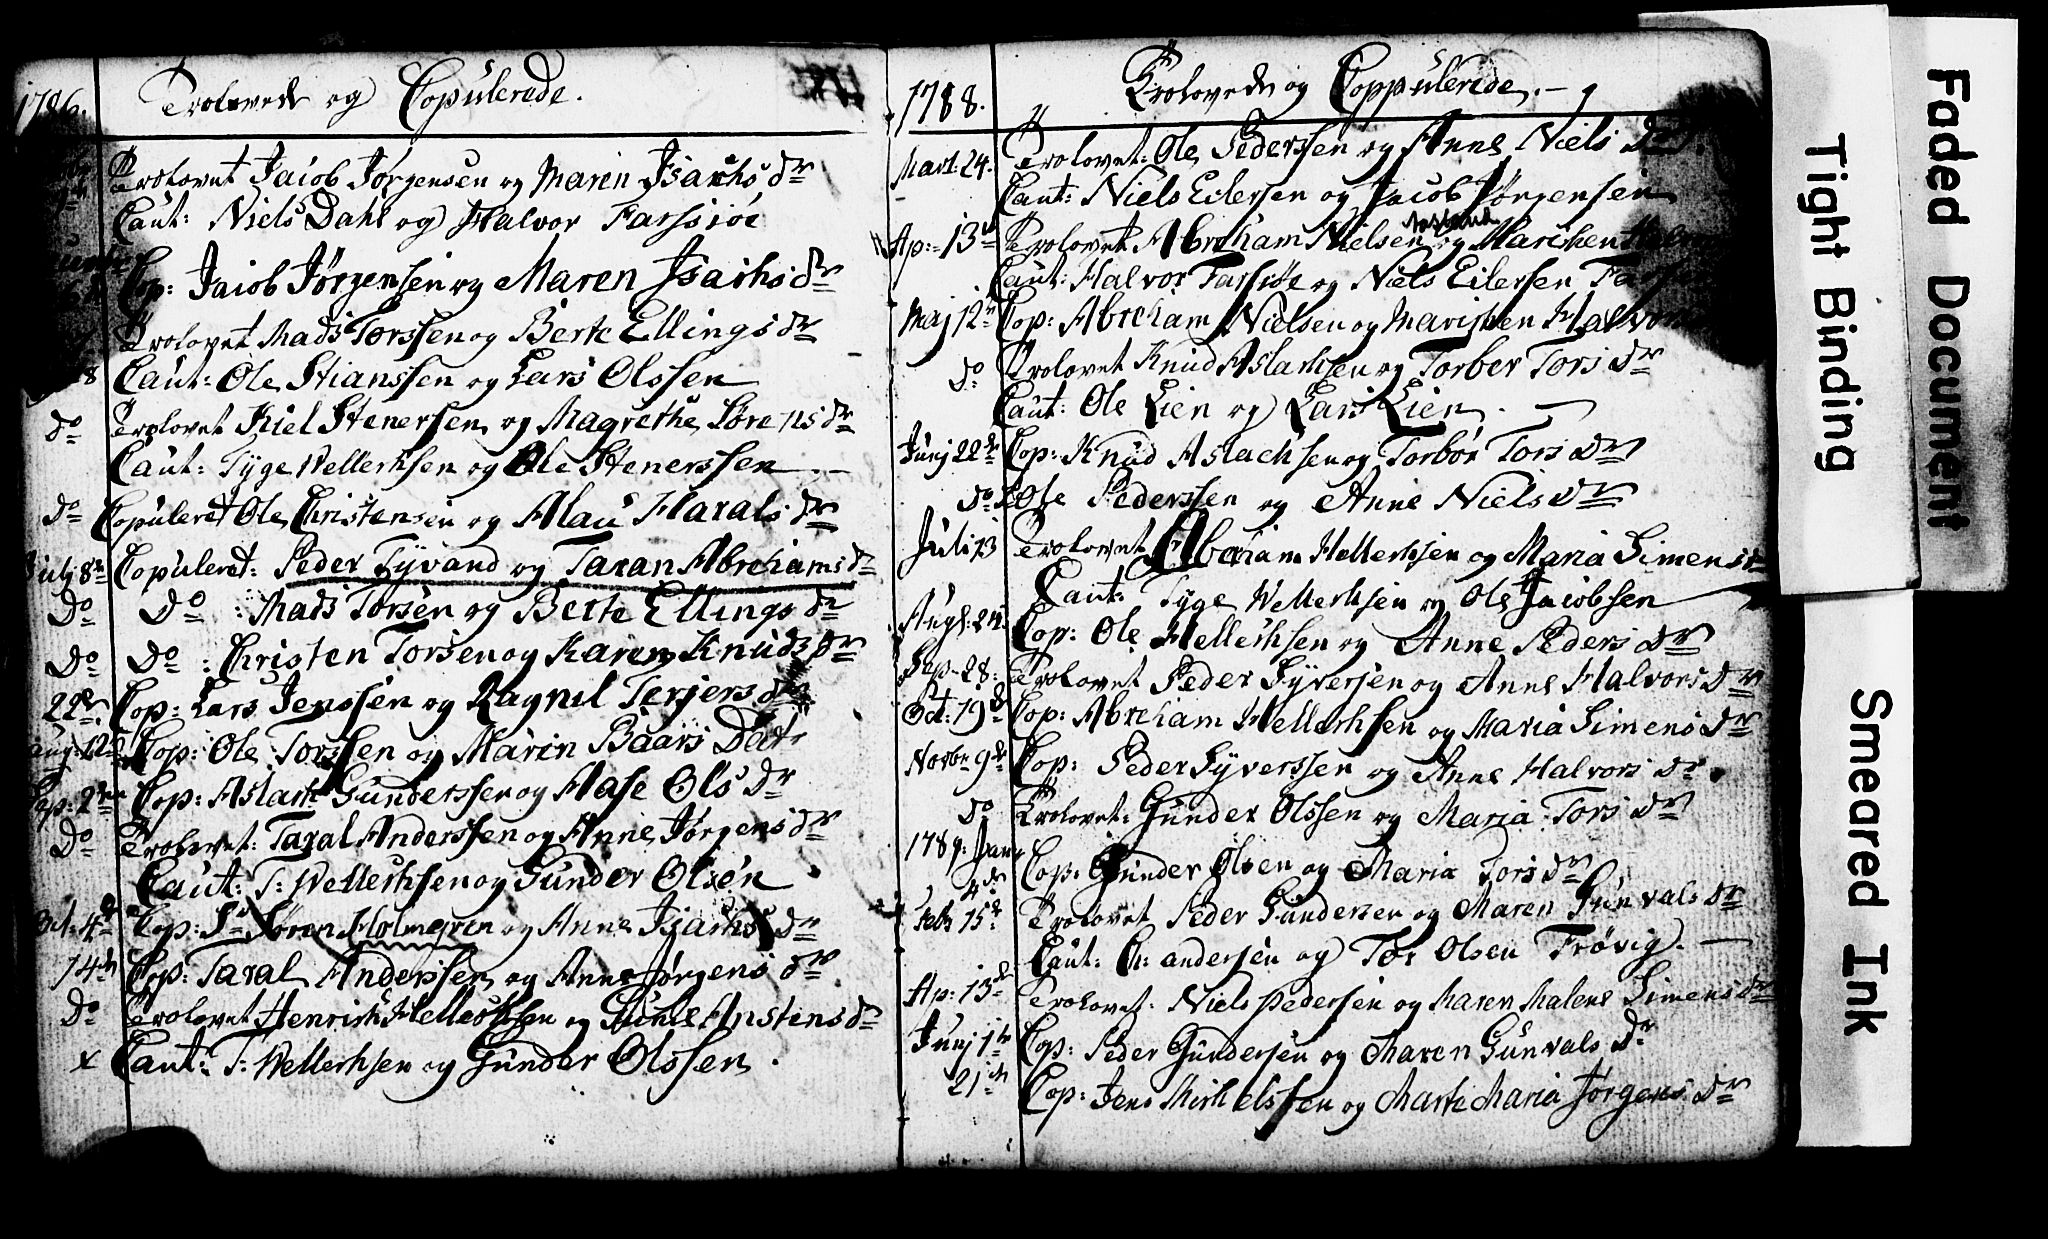 1786.
Trolovede og Copulerede.
Trolovet Jacob Jørgensen og Maren Isachs dr
Caut: Niels Dahl og Halvor Farssiøe
Cop: Jacob Jørgensen og Maren Isachs dr
Trolovet Mads Torssen og Berte Ellings dr
8 Caut: Ole Stianssen og Lars Olssen
do Trolovet Kiel Stenersen og Magrethe Sørens dr
Caut: Tyge Wellerksen og Ole Stenerssen
do Copuleret Ole Christensen og Alau Harals dr
July 8de Copuleret: Peder Tyvand og Taran Abrehams dr
Do Do : Mads Torsen og Berte Ellings dr
Do Do : Christen Torsen og Karen Knuds dr
22de Cop: Lars Jenssen og Ragnil Terjers dr
Aug: 12 Cop: Ole Torssen og Maren Baars Dat
Sep: 2den Cop: Aslach Gunderssen og Aase Ols dr
Do Trolovet: Taral Anderssen og Anne Jørgens dr
Caut: T: Wellerksen og Gunder Olsen
Oct: 4de Cop: Sr Søren Holmgren og Anne Isachs dr
14de Cop: Taral Anderssen og Anne Jørgens dr
Do Trolovet Henrich Hellerksen og Anstens dr
x Caut: T: Wellerksen og Gunder Olssen.
1788. Trolovede og Coppulerede.
Mart: 24. Trolovet: Ole Pederssen og Anne Niels Dr.
Caut: Niels Eilersen og Jacob Jørgensen
Ap: 13de Trolovet Abreham Nielsen og Marichen
Caut: Halvor Farssiøe og Niels Eilersen
Maj 12te Cop: Abreham Nielsen og Marichen Halvors
do Trolovet Knud Aslachsen og Torber Tors dr
Caut: Ole Lien og Lars Lien.
Junj 22de Cop: Knud Aslachsen og Torbør Tors dr
do Ole Pederssen og Anne Niels dr
Juli 13 Trolovet Abraham Hellerksen og Maria Simens dr
Caut: Tyge Wellerksen og Ole Jacobsen
Augs: 24 Cop: Ole Hellerksen og Anne Peders dr
Sep: 28: Trolovet Peder Syversen og Anne Halvors dr
Oct: 19de Cop: Abreham Hellerksen og Maria Simens dr
Novbr 9de Cop: Peder Syverssen og Anne Halvors dr.
do Trolovet: Gunder Olssen og Maria Tors dr
1789: Janv 4de Cop: Gunder Olsen og Maria Tors dr
Febr 15de Trolovet Peder Gundersen og Maren Gunvals dr
Caut: Ch: andersen og Tor Olsen Frøvig.
Ap: 13de Trolovet: Niels Pedersen og Maren Malene Simens dr
Junj 1te Cop: Peder Gundersen og Maren Gunvals dr
21de Cop: Jens Michelssen og Marte Maria Jørgens dr
Faded Document
Tight Binding
Smeared Ink